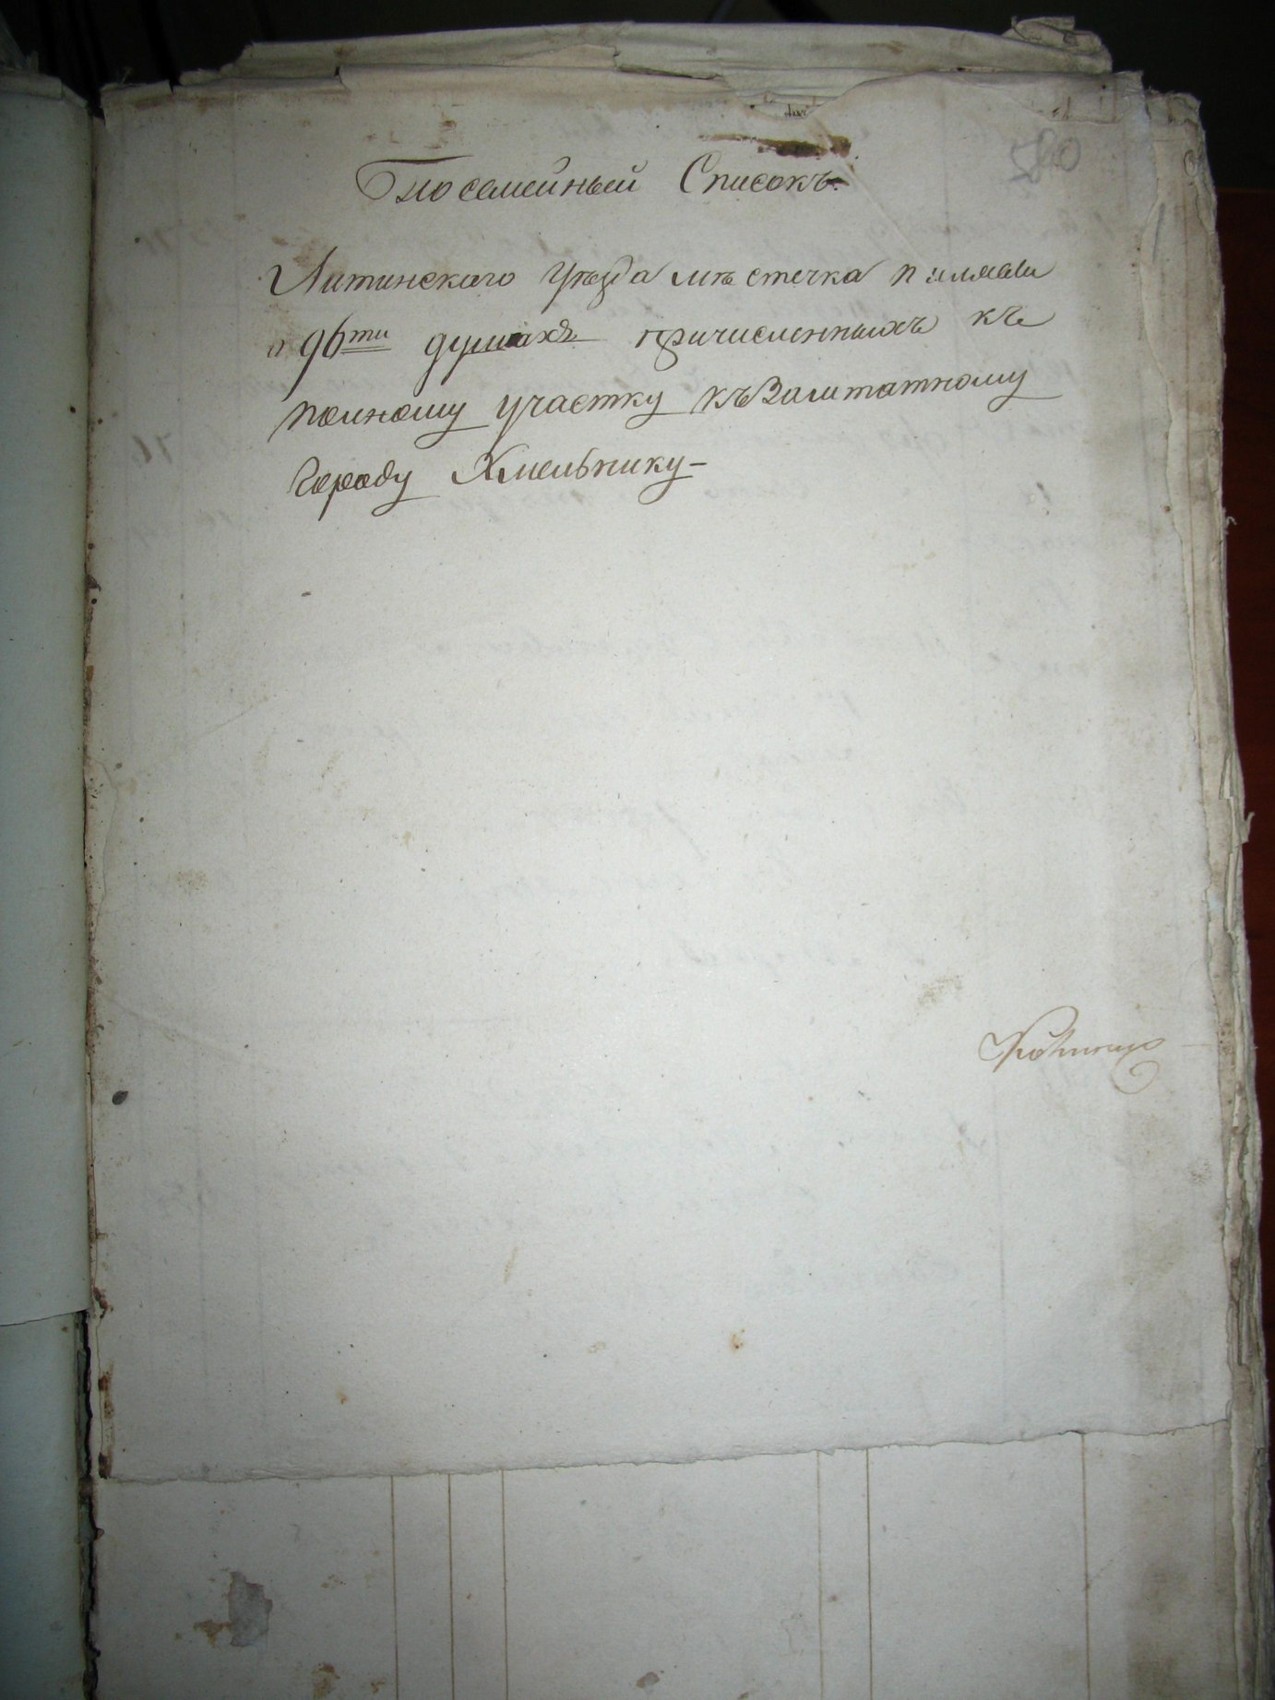 Посемейный Списокъ
Литинского Уѣзда мѣстечка Пилявы
о 96ти душахъ причисленныхъ къ
полному участку къ Заштатному
Городу Хмельнику –